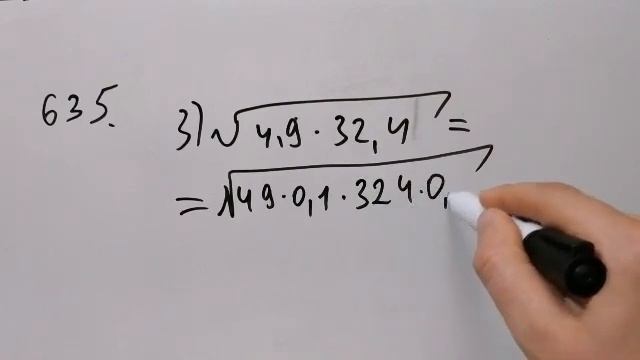 635. 3) √4,9 · 32,4 =
= √49 · 0,1 · 324 · 0,